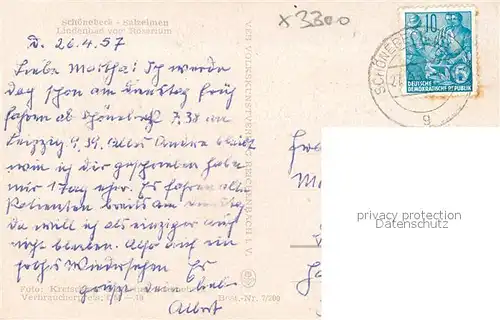 Schönebeck - Salzelmen
Lindenbad vom Rosarium
x 3300
D. 26.4.57
Liebe Martha! Ich werde
doch schon am Dienstag früh
fahren ab Schönebeck 7.38 an
Leipzig 9.39. Alles Andere bleibt
wie ich dir geschrieben habe
nur 1 Tag eher. Es fahren alle
Patienten bereits am
da will ich als einziger auf
nicht bleiben. Also auf ein
frohes Wiedersehen Es
grüßt dein lieb.
Albert
VEB VOLKSKUNSTVERLAG REICHENBACH I. V.
Foto:
Verbraucherpreis:
Best.-Nr. 7/200
SCHÖNEBE
9
10
DEUTSCHE
DEMOKRATISCHE REPUBLIK
privacy protection
Datenschutz